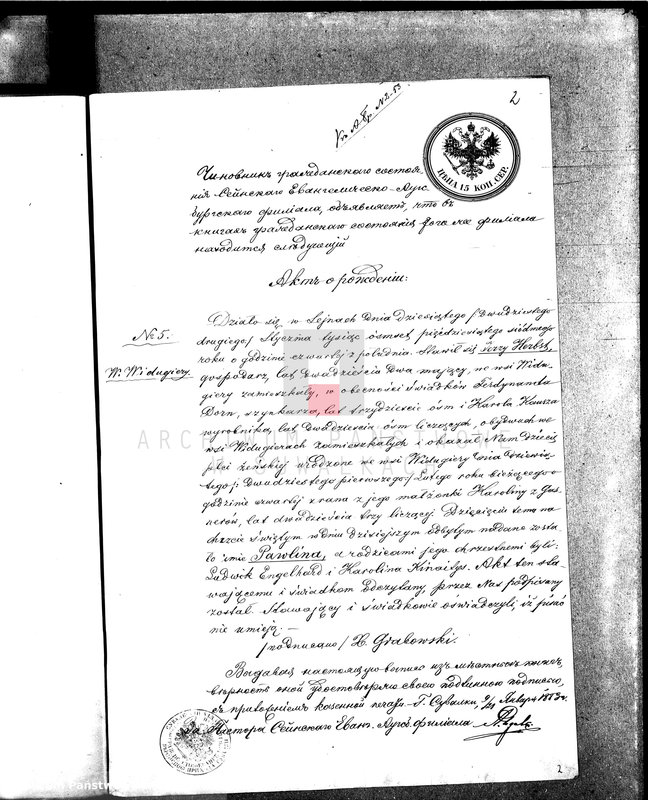 2
ЦѢНА 15 КОП. СЕР.
Чиновникъ гражданскаго состоя
нія Сейнскаго Евангелическо-Аугс
бургскаго филіала, объявляетъ, что въ
книгахъ гражданскаго состоянія сего же филіала
находится слѣдующій
Актъ о рожденіи:
№ 5.
W. Widugiery.
Działo się w Sejnach dnia dziesiątego /dwudziestego
drugiego/ Stycznia tysiąc ósmset pięćdziesiątego siódmego
roku o godzinie czwartéj z południa. Stawił się Jerzy Herbst,
gospodarz, lat dwadzieścia dwa mający, we wsi Widu-
giery zamieszkały, w obecności świadków Ferdynanta
Dorn, szynkarza, lat trzydzieście óśm i Karola
wyrobnika, lat dwadzieścia óśm liczących, obydwóch we
wsi Widugierach zamieszkałych i okazał Nam dziecię
płci żeńskiéj urodzone we wsi Widugiery dnia dziewią-
tego /: dwudziestego pierwszego/ Lutego roku bieżącego o
godzinie czwartéj z rana z jego małżonki Karoliny z
nerów, lat dwadzieścia trzy liczącéj. Dziecięciu temu na
chrzcie świętym w dniu dzisiejszym odbytym nadane zosta-
ło imie Pawlina, a rodzicami jego chrzestnemi byli:
Ludwik Engelhard i Karolina Kinaitys. Akt ten sta-
wającemu i świadkom odczytany, przez Nas podpisany
został. Stawający i świadkowie oświadczyli, iż pisać
nie umieją. —
/подписано/ H. Grabowski.
Выдавая настоящую выпись изъ мѣстныхъ книгъ,
вѣрность оной удостовѣряю своею подлинною подписью,
съ приложеніемъ казенной печати. Г. Сувалки Января
За Пастора Сейнскаго Еван. Аугсб. филіала
2